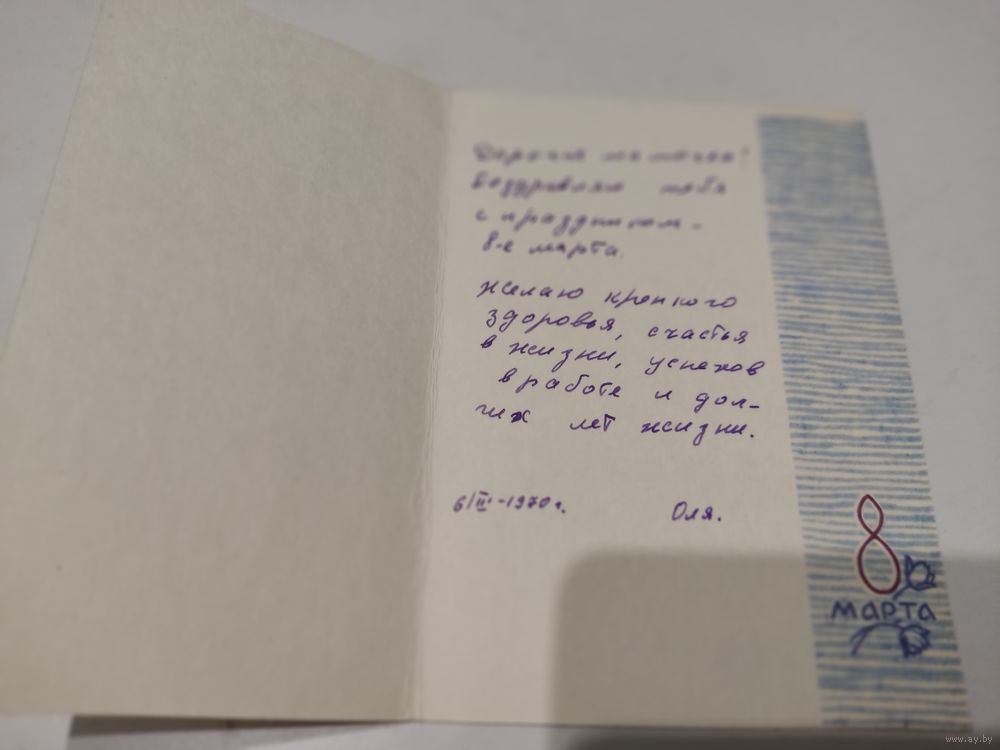 Дорогая мамочка!
Поздравляю тебя
с праздником -
8-е марта.
Желаю крепкого
здоровья, счастья
в жизни, успехов
в работе и дол-
гих лет жизни.
6/III-1970 г. Оля.
8
МАРТА
www.ay.by